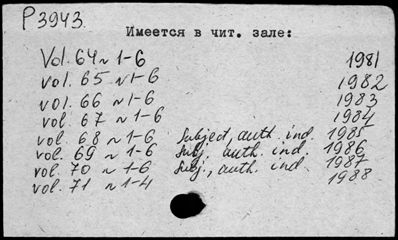 P3943
Имеется в чит. зале:
Vol. 64 N 1-6 1981
vol. 65 N 1-6 1982
vol. 66 N 1-6 1983
vol. 67 N 1-6 1984
vol. 68 N 1-6 Subject, auth. ind. 1985
vol. 69 N 1-6 Subj., auth. ind. 1986
vol. 70 N 1-6 Subj., auth. ind. 1987
vol. 71 N 1-4 1988